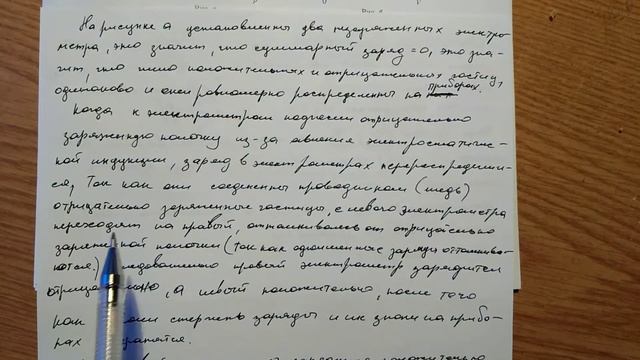 На рисунке а установлены два незаряженных электро-
метра, это значит, что суммарный заряд = 0, это зна-
чит, что число положительных и отрицательных частиц,
одинаково и они равномерно распределены на приборах.
Когда к электрометрам поднесли отрицательно
заряженную палочку из-за явления электростатиче-
ской индукции, заряд в электрометрах перераспредели-
ся, Так как они соединены проводником (медь)
отрицательно заряженные частицы, с левого электрометра
переходят на правый, отталкиваясь от отрицательно
заряженной палочки (так как одноименные заряды отталкива-
ются.) следовательно правый электрометр зарядится
отрицательно, а левый положительно, после того
как стержень заряды и их знаки на прибо-
рах